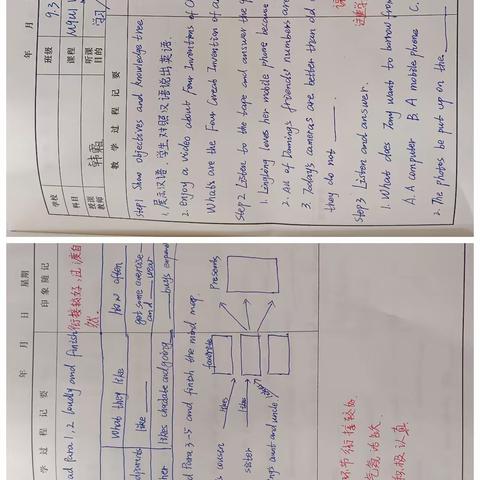 年 月
班级 9.3
课程
听课目的 学习
学校
科目
授课教师 韩
教 学 过 程 记 要
Step1 Show objectives and knowledge tree
1. 展示汉语. 学生对照汉语说出英语.
2. Enjoy a video about Four Inventions of
Whats are the Four Great Invention of
Step 2 Listen to the tape and answer the
1. Lingling loves her mobile phone because
2. All of Daming's friends' numbers are
3. Today's cameras are better than old
they do not ____.
Step3 Listen and answer.
1. What does Tony want to borrow from
A. A computer B. A mobile phone C.
2. The photos be put up on the ____
年 月 日 星期
学 过 程 记 要
印 象 随 记
ad Para 1, 2 loudly and finish
衔接较好, 过渡自然.
What they like
How often
dparents
like ____
get some exercise and ____ wear
her
likes chocolate and going ____
____ buys expensi
d Para 3-5 and finish the mind map.
favourite
Presents
s cousin likes
sister likes
ng's aunt and uncle
环节衔接较好
气氛活跃
积极认真